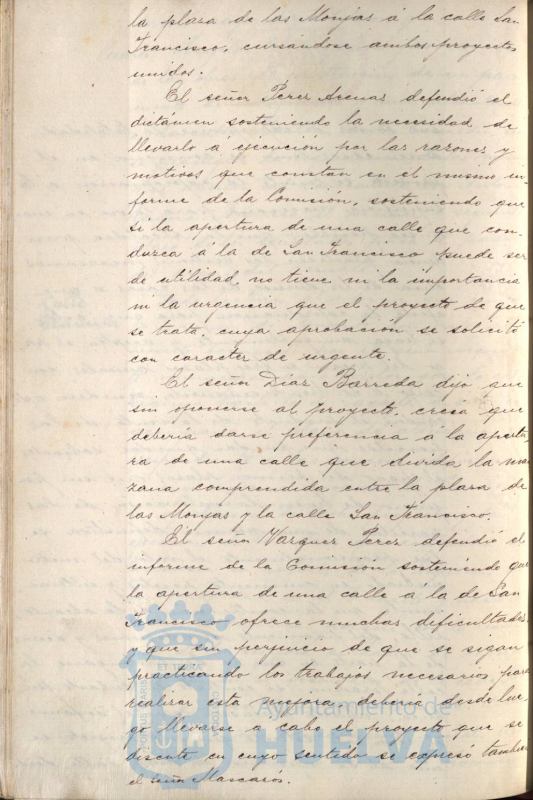 la plaza de las Monjas á la calle San
Francisco, cursándose ambos proyectos
unidos.
El señor Pérez Arenas defendió el
dictámen sosteniendo la necesidad de
llevarlo a ejecución por las razones y
motivos que constan en el mismo in-
forme de la Comisión, sosteniendo que
si la apertura de una calle que con-
duzca á la de San Francisco puede ser
de utilidad, no tiene ni la importancia
ni la urgencia que el proyecto de que
se trata, cuya aprobación se solicitó
con caracter de urgente.
El señor Díaz Barreda dijo que
sin oponerse al proyecto, creía que
debería darse preferencia á la apertu-
ra de una calle que divida la man
zana comprendida entre la plaza de
las Monjas y la calle San Francisco.
El señor Vazquez Perez defendió el
informe de la Comisión sosteniendo que
la apertura de una calle á la de San
Francisco ofrece muchas dificultades
y que sin perjuicio de que se sigan
practicando los trabajos necesarios para
realizar esta mejora, debería desde lue-
go llevarse a cabo el proyecto que se
discute en cuyo sentido se expresó tambien
el señor Mascarós.
Ayuntamiento de
HUELVA